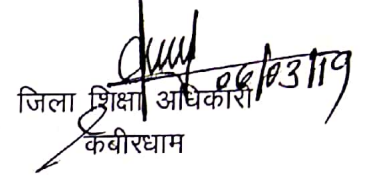 06/03/19
जिला शिक्षा अधिकारी
कबीरधाम